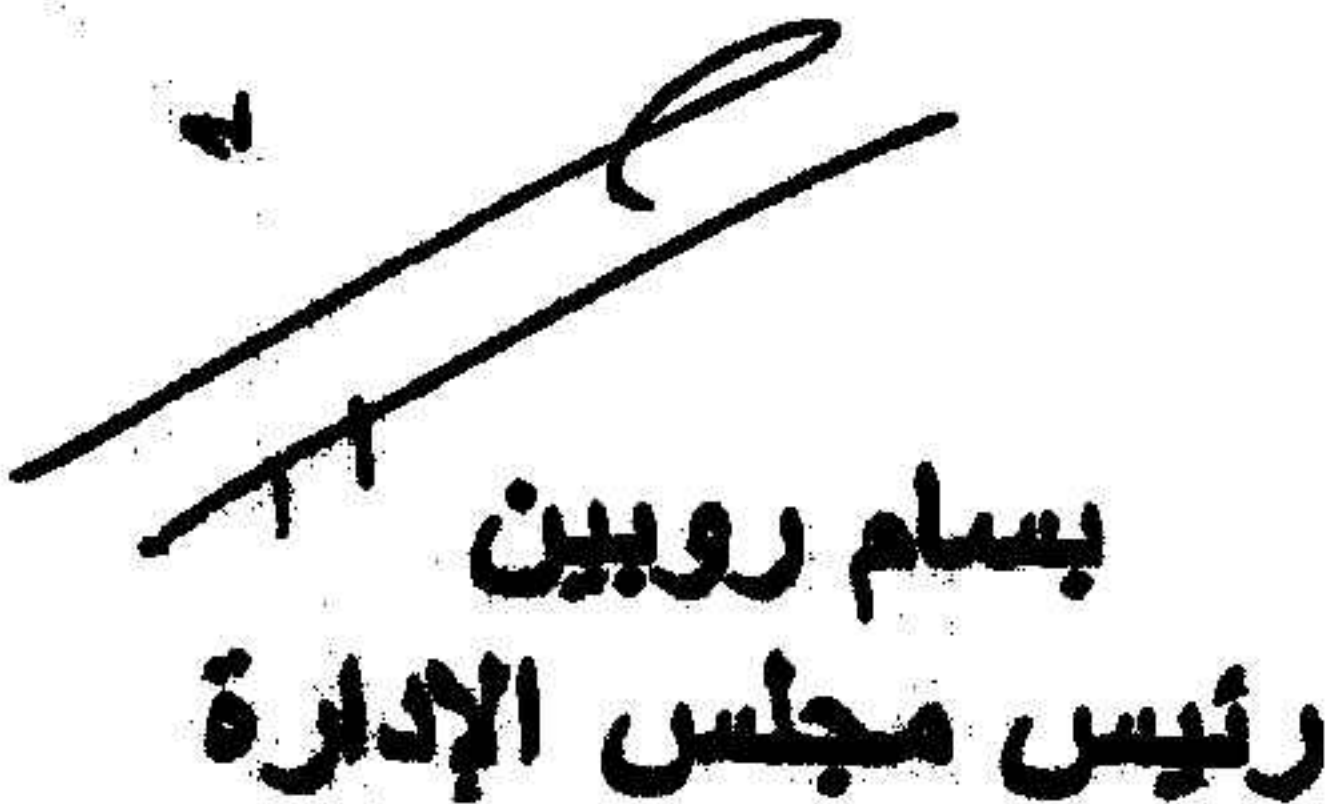 بسام روبين
رئيس مجلس الإدارة